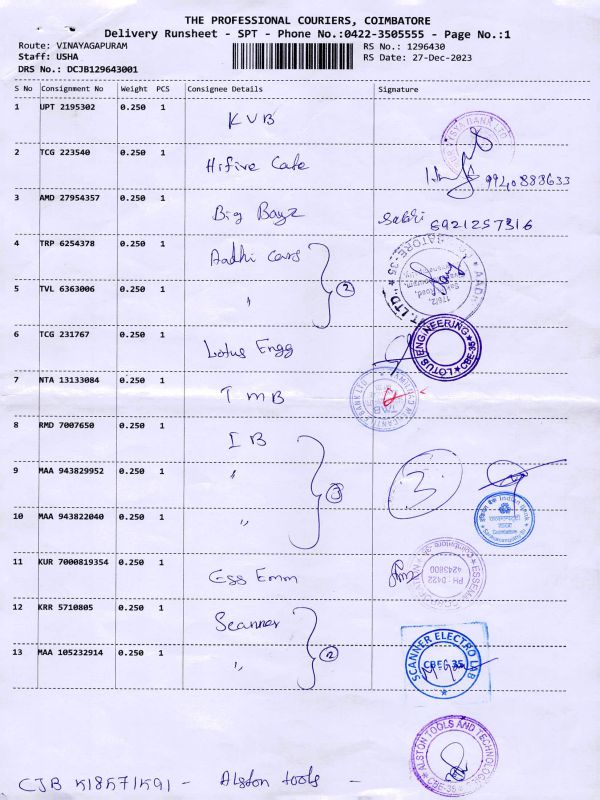 THE PROFESSIONAL COURIERS, COIMBATORE
Delivery Runsheet - SPT - Phone No.:0422-3505555 - Page No.:1
Route: VINAYAGAPURAM RS No.: 1296430
Staff: USHA RS Date: 27-Dec-2023
DRS No.: DCJB129643001
S No Consignment No Weight PCS Consignee Details Signature
1 UPT 2195302 0.250 1 KVB
2 TCG 223540 0.250 1 Hifive Cafe 9940888633
3 AMD 27954357 0.250 1 Big Bayz Sakthi 6921257316
4 TRP 6254378 0.250 1 Aadhi Cars
5 TVL 6363006 0.250 1 " 2
6 TCG 231767 0.250 1 Lotus Engg LOTUS ENGINEERING CBE-35
7 NTA 13133084 0.250 1 TMB TMB
8 RMD 7007650 0.250 1 IB
9 MAA 943829952 0.250 1 " 3 3
10 MAA 943822040 0.250 1 " Indian Bank
11 KUR 7000819354 0.250 1 Ess Emm PH : 0422 4243800
12 KRR 5710805 0.250 1 Scanner
13 MAA 105232914 0.250 1 " 2 SCANNER ELECTRO LAB CBE-35
ALSTON TOOLS AND TECHNOLOGY CBE-35
CJB 518571591 - Alston tools -